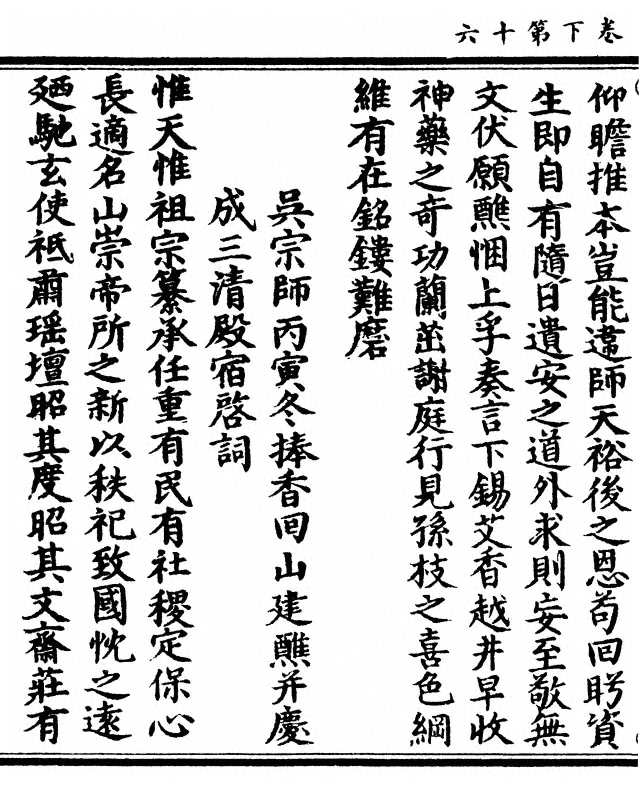 卷下第十六
仰瞻推本豈能違師天裕後之恩苟回眄資
生即自有隨日遺安之道外求則妄至敬無
文伏願醮悃上孚奏言下錫艾香越井早收
神藥之奇功蘭茁謝庭行見孫枝之喜色綱
維有在銘鏤難磨
吳宗師丙寅冬捧香回山建醮并慶
成三清殿宿啓詞
惟天惟祖宗纂承任重有民有社稷定保心
長適名山崇帝所之新以秩祀致國忱之遠
廼馳玄使祗肅瑶壇昭其度昭其文齋莊有